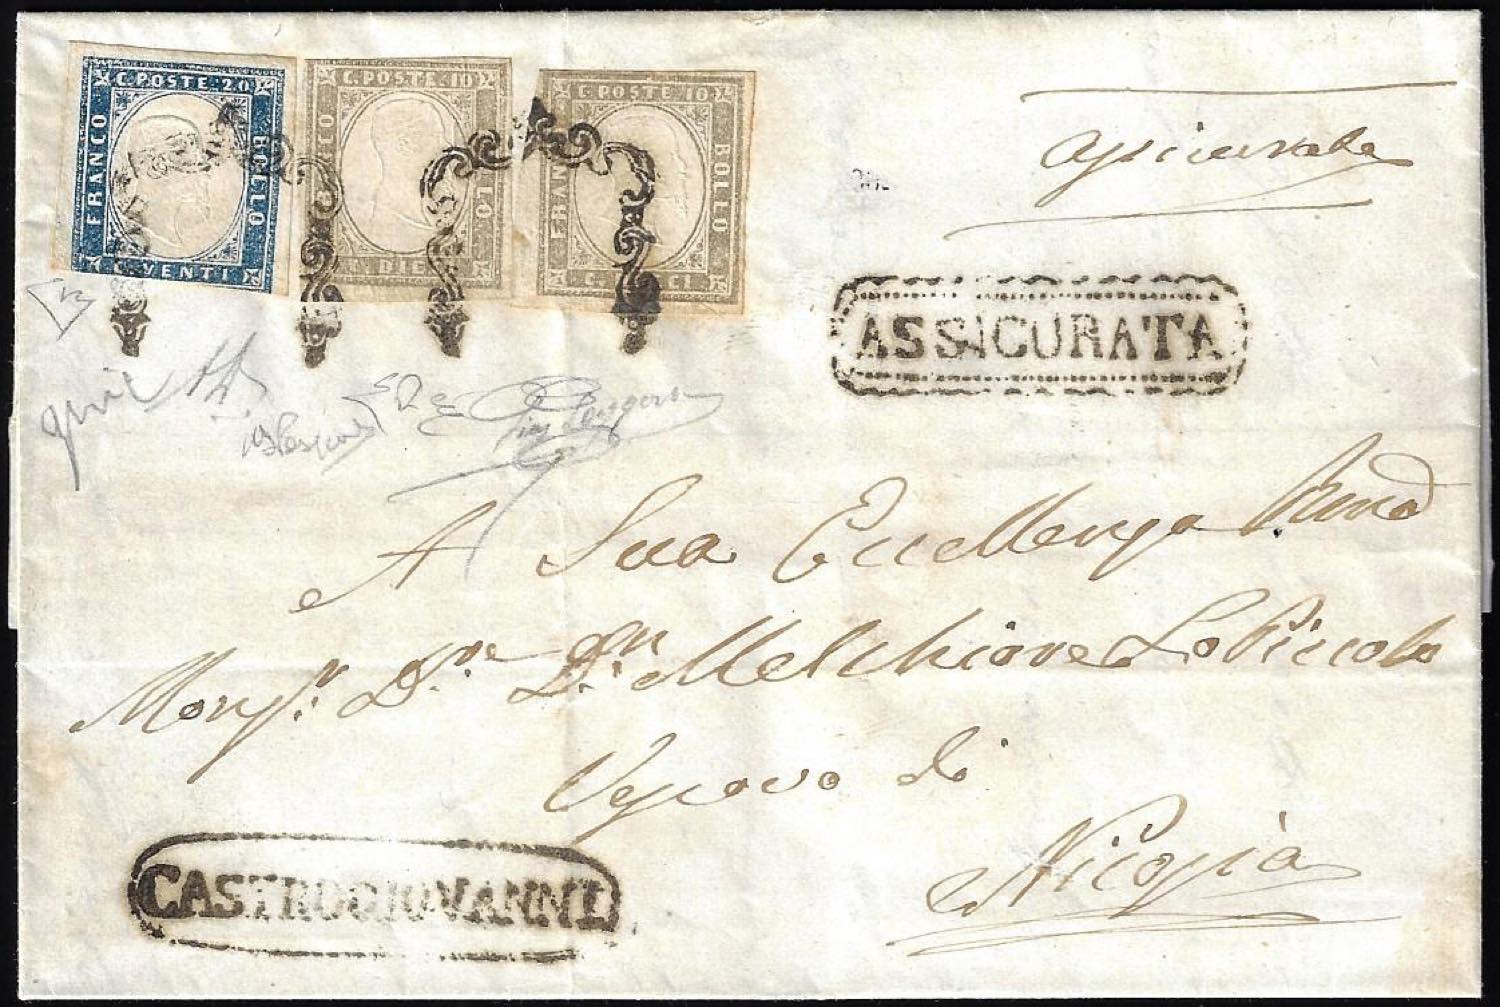 C. POSTE. 20
FRANCO
BOLLO
C. VENTI
C. POSTE. 10
NCO
LLO
DIE
C. POSTE. 10
FRANCO
BOLLO
C. CI
assicurata
ASSICURATA
A Sua Eccellenza
Monsr. Dn. Melchiorre Lo Piccolo
Vescovo di
Nicosia
CASTROGIOVANNI.